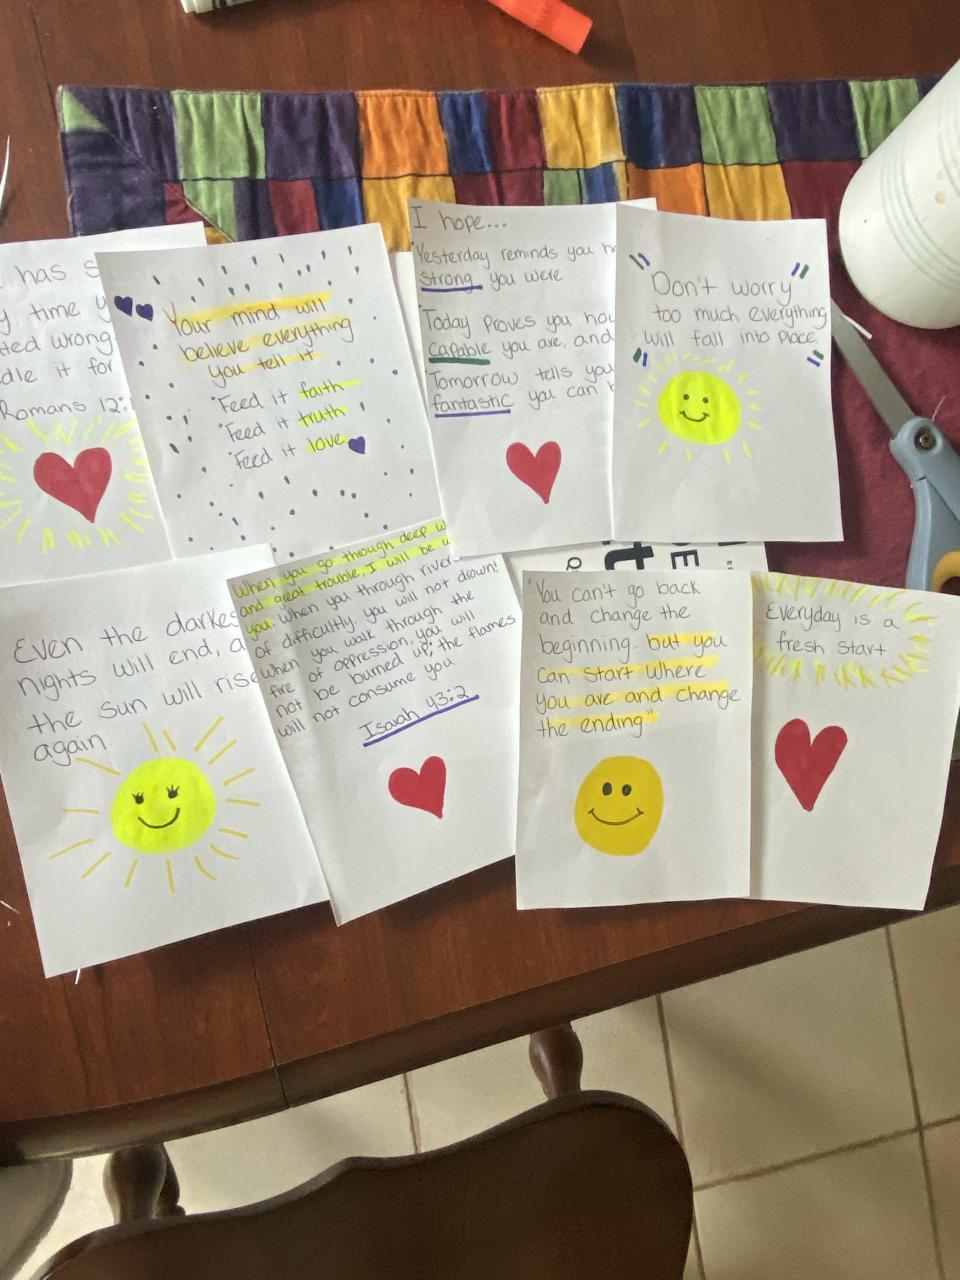 has
time
ted wrong
dle it for
Romans 12:
Your mind will
believe everything
you tell it
Feed it faith
Feed it truth
Feed it love
I hope...
Yesterday reminds you
strong you were
Today proves you
capable you are, and
Tomorrow tells you
fantastic you can
Don't worry
too much everything
will fall into place
Even the
nights will end,
the sun will rise
again
When you go through deep
and great trouble, I will be
you. When you through
of difficulty, you will not drown!
When you walk through the
fire of oppression, you will
not be burned up; the flames
will not consume you
Isaiah 43:2
"You can't go back
and change the
beginning. but you
can start where
you are and change
the ending"
Everyday is a
fresh start